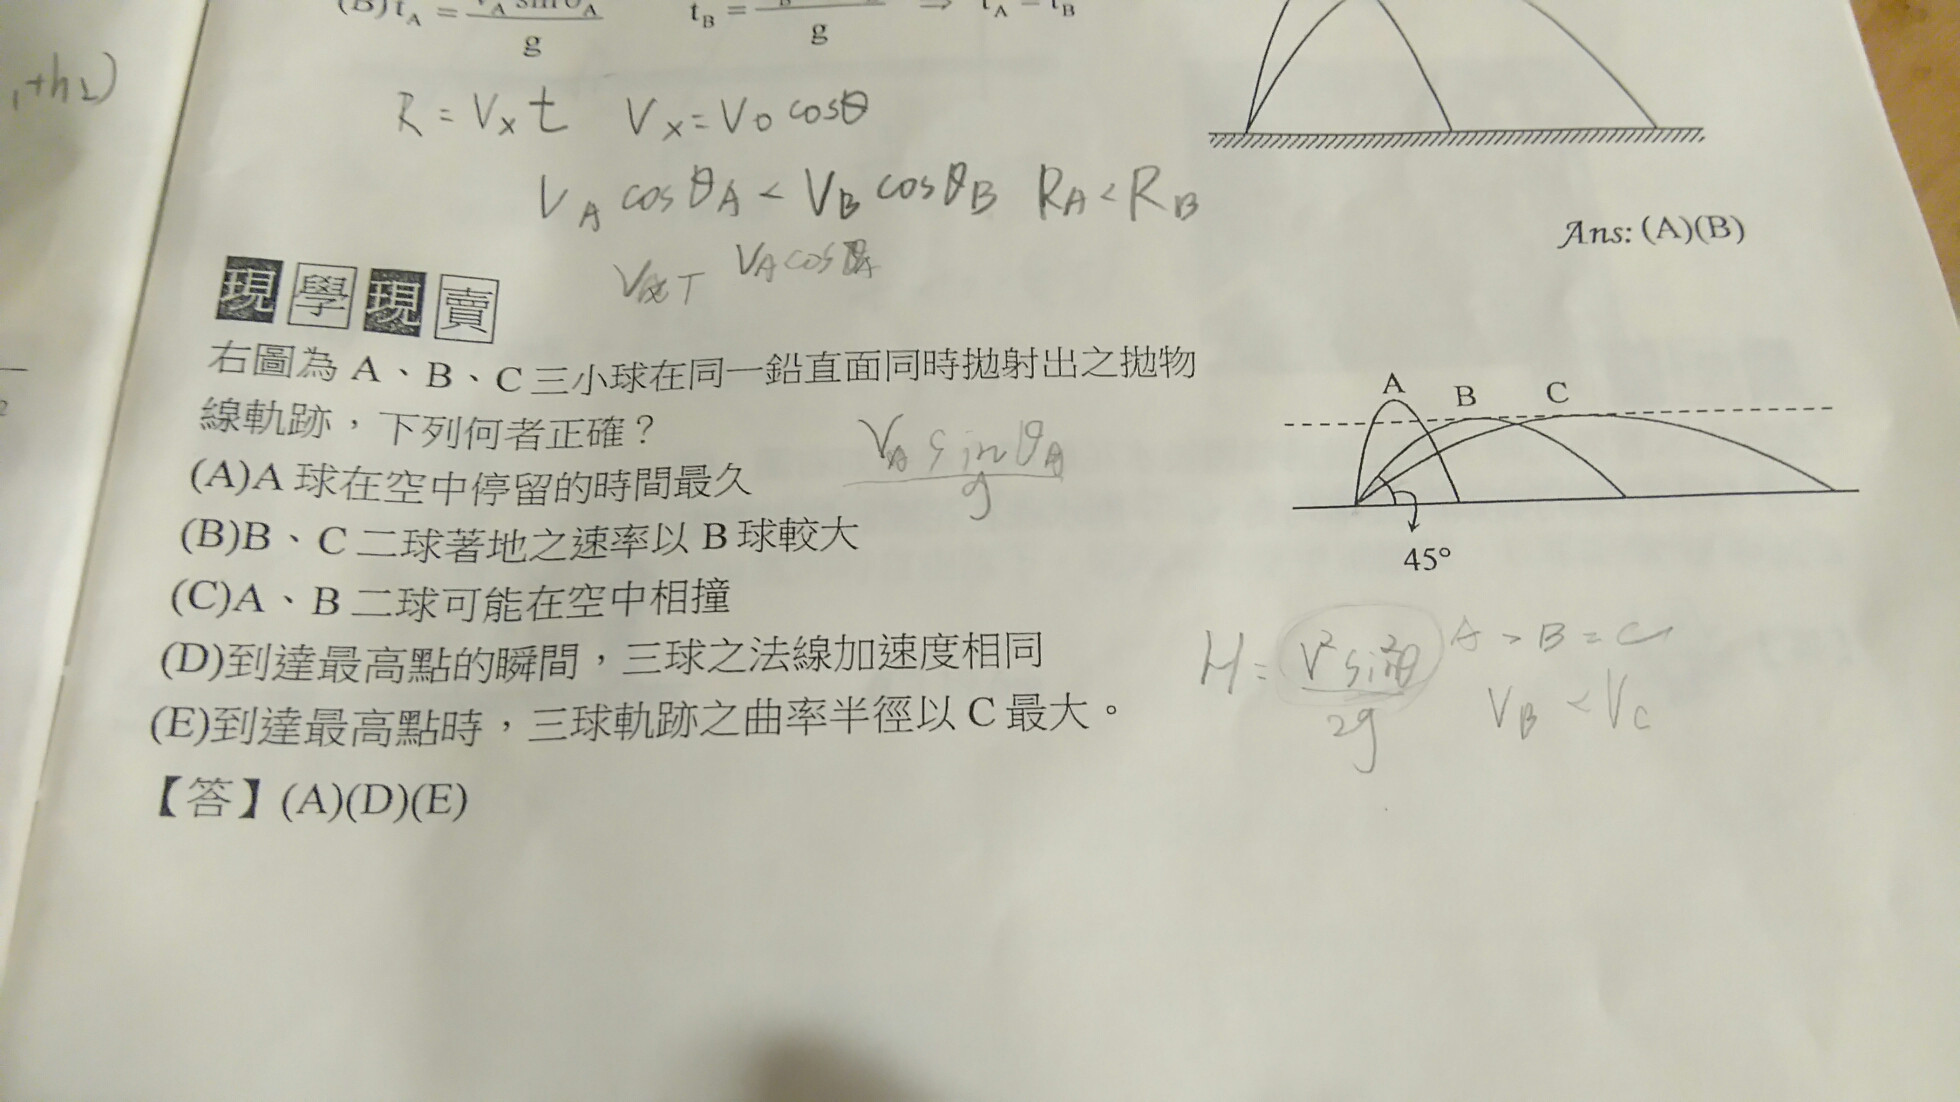 (B) t_A = v_A sinθ_A / g    t_B = / g ⇒ t_A = t_B
+h₂)
R = Vx t    Vx = V₀ cosθ
V_A cosθ_A < V_B cosθ_B    R_A < R_B
Ans: (A)(B)
V_A cosθ_A
現學現賣
右圖為 A、B、C 三小球在同一鉛直面同時拋射出之拋物
線軌跡，下列何者正確？
(A)A 球在空中停留的時間最久
(B)B、C 二球著地之速率以 B 球較大
(C)A、B 二球可能在空中相撞
(D)到達最高點的瞬間，三球之法線加速度相同
(E)到達最高點時，三球軌跡之曲率半徑以 C 最大。
【答】(A)(D)(E)
V_A sinθ_A / g
A B C
45°
H = V² sin²θ / 2g    A > B = C
V_B < V_C